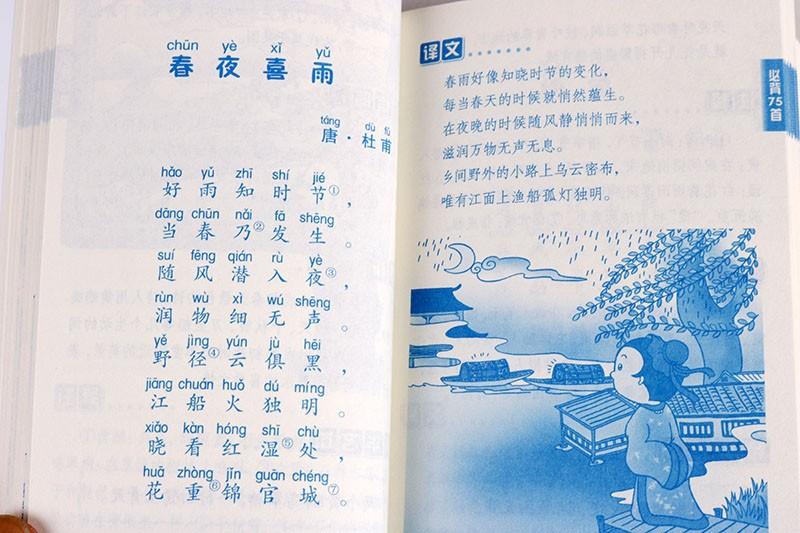 chūn yè xǐ yǔ
春夜喜雨
táng dù fǔ
唐·杜甫
hǎo yǔ zhī shí jié
好雨知时节①，
dāng chūn nǎi fā shēng
当春乃②发生。
suí fēng qián rù yè
随风潜入夜③，
rùn wù xì wú shēng
润物细无声。
yě jìng yún jù hēi
野径④云俱黑，
jiāng chuán huǒ dú míng
江船火独明。
xiǎo kàn hóng shī chù
晓看红湿⑤处，
huā zhòng jǐn guān chéng
花重⑥锦官城⑦。
译文
春雨好像知晓时节的变化，
每当春天的时候就悄然蕴生。
在夜晚的时候随风静悄悄而来，
滋润万物无声无息。
乡间野外的小路上乌云密布，
唯有江面上渔船孤灯独明。
必背75首